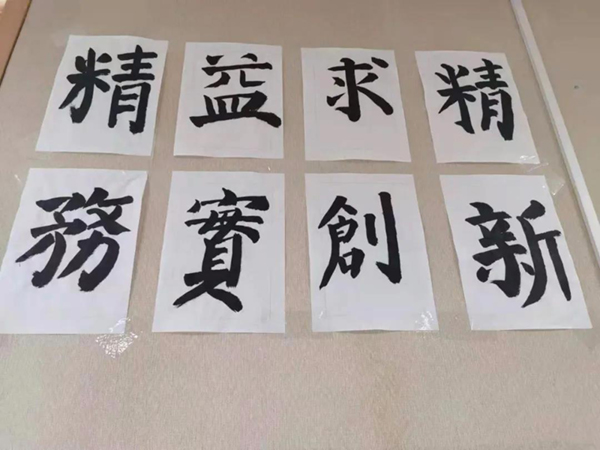 精益求精
務實創新